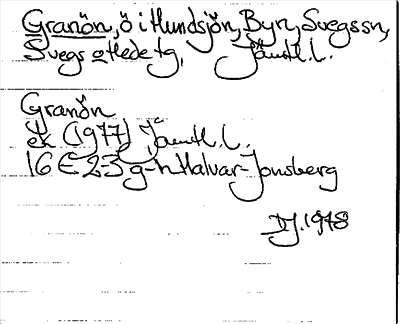 Granön, ö i Hundsjön, Byn, Svegssn,
Svegs otledetg, Jämtl.l.
Granön
ek (1977) Jämtl.l.
16 E 2-3 g-h Halvar-Jonsberg
DJ. 1978